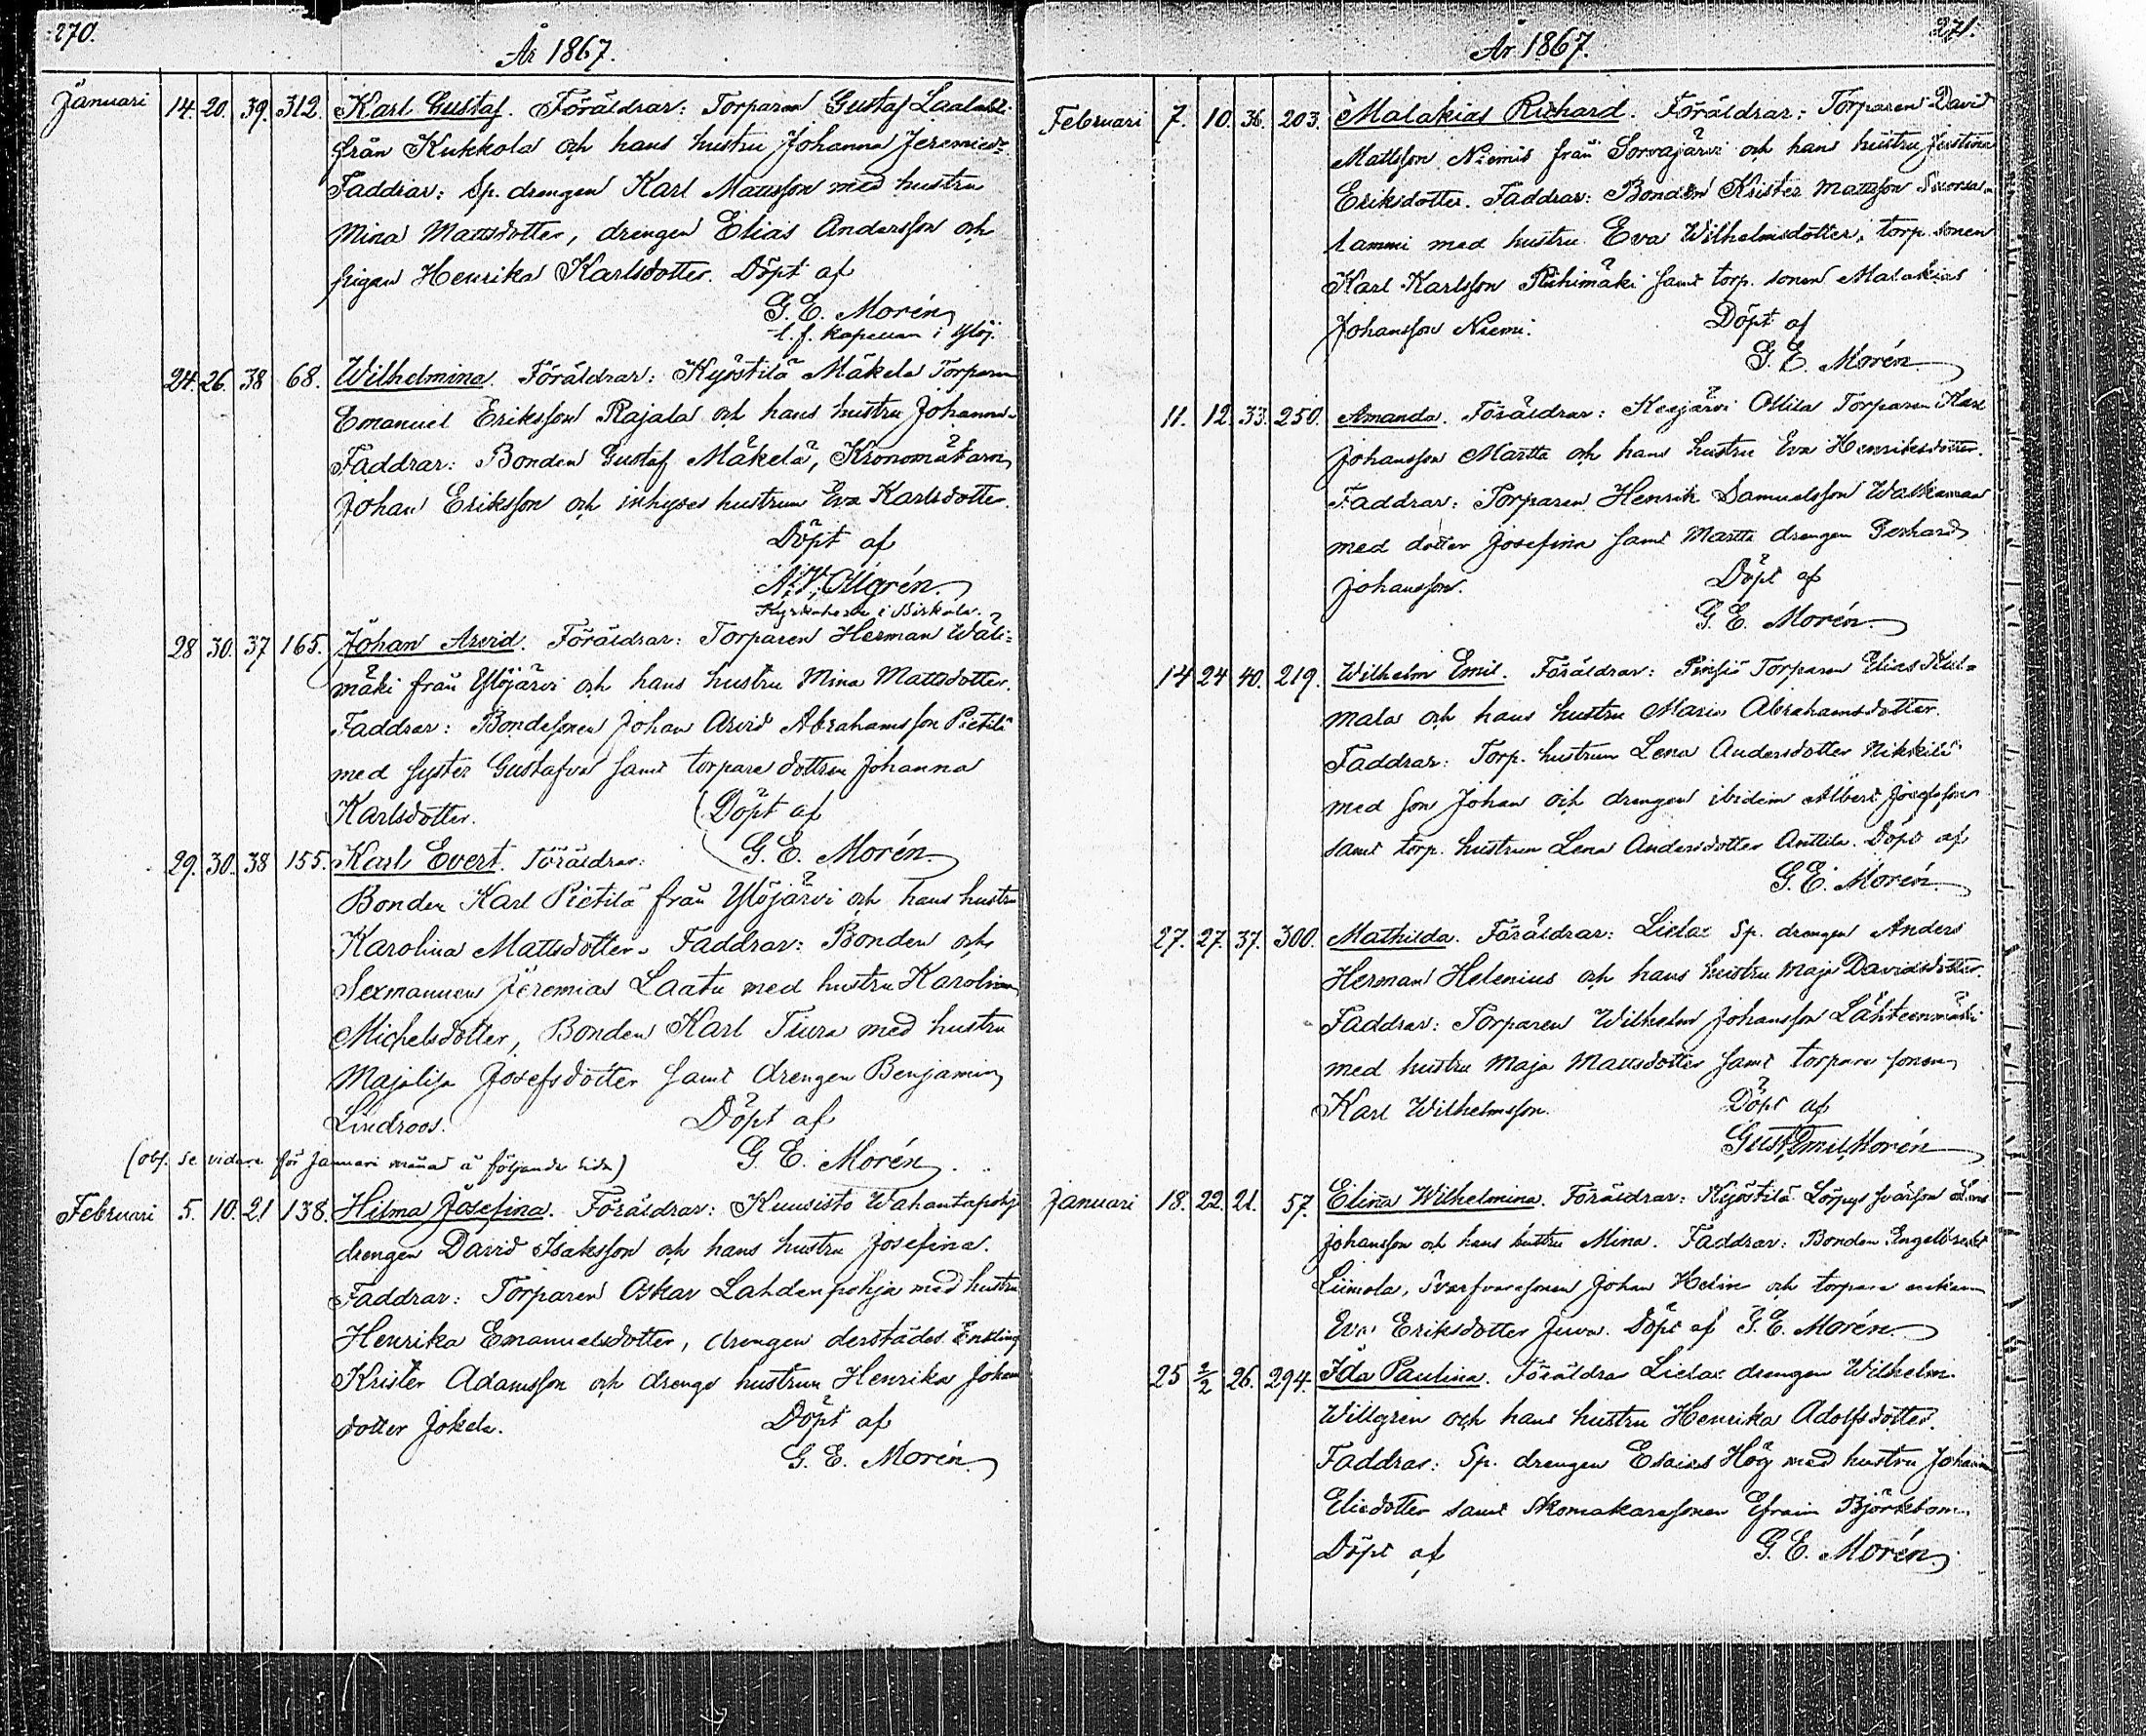 270.
År 1867.
Januari 14. 20. 39. 312. Karl Gustaf. Föräldrar: Torparen Gustaf
från Kukkola och hans hustru Johanna Jeremiedr.
Faddrar: Sp. drengen Karl Mattsson med hustru
Mina Mattsdotter, drengen Elias Andersson och
pigan Henrika Karlsdotter. Döpt af
G. E. Morén
t. f. kapellan i Ylöj.
24. 26. 38 68. Wilhelmina. Föräldrar: Kyöstilä Mäkelä Torparen
Emanuel Eriksson Rajala och hans hustru Johanna.
Faddrar: Bonden Gustaf Mäkelä, Kronomätaren
Johan Eriksson och inhyses hustrun Eva Karlsdotter.
Döpt af
Kyrkoherde i Birkala.
28 30. 37 165. Johan Arvid. Föräldrar: Torparen Herman Wäli=
mäki från Ylöjärvi och hans hustru Mina Mattsdotter.
Faddrar: Bondesonen Johan Arvid Abrahamsson Pietilä
med syster Gustafva samt torpare dottren Johanna
Karlsdotter. (Döpt af
G. E. Morén.
29. 30. 38 155. Karl Evert. Föräldrar:
Bonden Karl Pietilä från Ylöjärvi och hans hustru
Karolina Mattsdotter. Faddrar: Bonden och
Sexmannen Jeremias Laatu med hustru Karolina
Michelsdotter, Bonden Karl Tiura med hustru
Majalisa Josefsdotter samt drengen Benjamin
Lindroos. Döpt af
G. E. Morén.
(obs. se vidare för Januari månad å följande sida)
Februari 5. 10. 21 138. Hilma Josefina. Föräldrar: Kuusisto Wahantapohj
drengen David Isaksson och hans hustru Josefina.
Faddrar: Torparen Oskar Lahdenpohja med hustru
Henrika Emanuelsdotter, drengen derstädes Enkling
Krister Adamsson och drengs hustrun Henrika Johans
dotter Jokela. Döpt af
G. E. Morén.
271.
År 1867.
Februari 7. 10. 36. 203. Malakias Richard. Föräldrar: Torparen David
Mattsson Niemis från Sorvajärvi och hans hustru Justina
Eriksdotter. Faddrar: Bonden Krister Mattsson
lammi med hustru Eva Wilhelmsdotter, torp. sonen
Karl Karlsson Riihimäki samt torp. sonen Malakias
Johansson Niemi. Döpt af
G. E. Morén
11. 12. 33. 250. Amanda. Föräldrar: Keijärvi Ollila Torparen Karl
Johansson Martta och hans hustru Eva Henriksdotter.
Faddrar: Torparen Henrik Samuelsson Walkaman
med dotter Josefina samt Martta drengen Gerhard
Johansson. Döpt af
G. E. Morén.
14 24 40. 219. Wilhelm Emil. Föräldrar: Pinsiö Torparen Elias
mala och hans hustru Maria Abrahamsdotter.
Faddrar: Torp. hustrun Lena Andersdotter Nikkilä
med son Johan och drengen ibidem Albert Josefsson
samt torp. hustrun Lena Andersdotter Anttila. Döpt af
G. E. Morén.
27. 27. 37. 300. Mathilda. Föräldrar: Lielax Sp. drengen Anders
Herman Helenius och hans hustru Maja Davidsdotter.
Faddrar: Torparen Wilhelm Johansson Lähteenmäki
med hustru Maja Mattsdotter samt torpare sonen
Karl Wilhelmsson. Döpt af
Gust. Emil Morén
Januari 18. 22. 21. 57. Elina Wilhelmina. Föräldrar: Kyöstilä
Johansson och hans hustru Mina. Faddrar: Bonden Engelbrekt
Liimola, Svarfvaresonen Johan Helin och torpare enkan
Eva Eriksdotter Juva. Döpt af G. E. Morén.
25 2/2 26. 294. Ida Paulina. Föräldra Lielax drengen Wilhelm
Willgren och hans hustru Henrika Adolfsdotter.
Faddrar: Sp. drengen Esaias Hög med hustru Johanna
Eliedotter samt Skomakaresonen Efraim Björkbom.
Döpt af G. E. Morén.